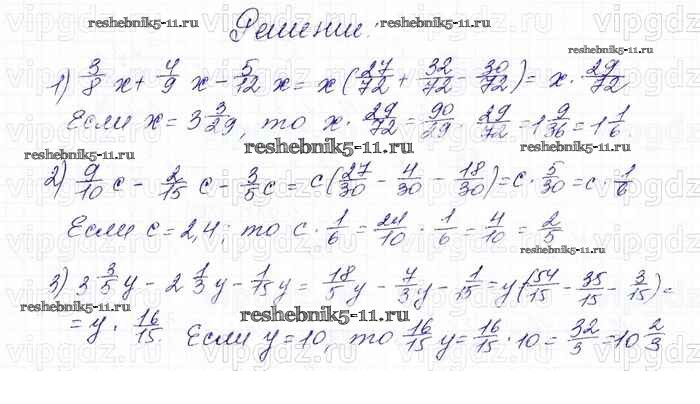 reshebnik5-11.ru
Решение.
reshebnik5-11.ru
1) 3/8 x + 4/9 x - 5/12 x = x (27/72 + 32/72 - 30/72) = x · 29/72
Если x = 3 3/29, то x · 29/72 = 90/29 · 29/72 = 1 9/36 = 1 1/6.
reshebnik5-11.ru
reshebnik5-11.ru
2) 9/10 c - 2/15 c - 3/5 c = c (27/30 - 4/30 - 18/30) = c · 5/30 = c · 1/6
Если c = 2,4; то c · 1/6 = 24/10 · 1/6 = 4/10 = 2/5
reshebnik5-11.ru
3) 3 3/5 y - 2 1/3 y - 1/15 y = 18/5 y - 7/3 y - 1/15 = y (54/15 - 35/15 - 3/15) =
reshebnik5-11.ru
reshebnik5-11.ru
= y · 16/15. Если y = 10, то 16/15 y = 16/15 · 10 = 32/3 = 10 2/3